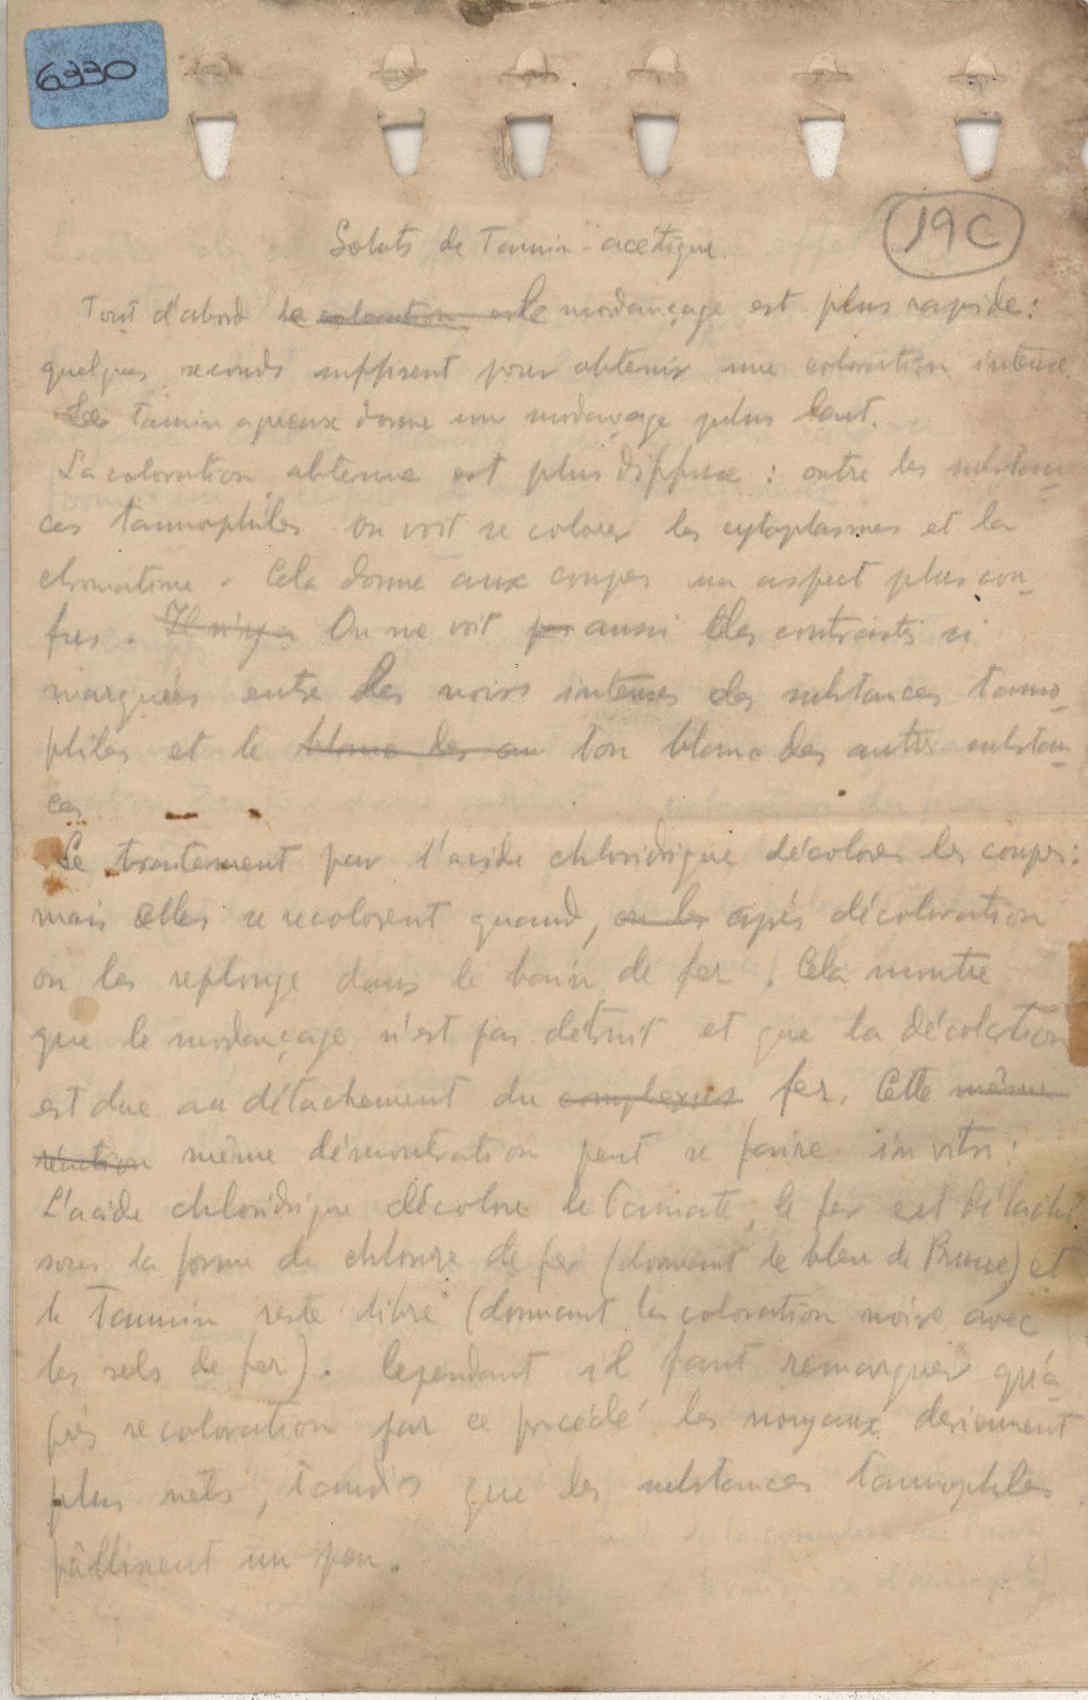 6330
19C
Soluts de Tannin-acétique.
Tout d'abord le coloration est le mordançage est plus rapide:
quelques seconds suffisent pour obtenir une coloration intense.
Le Tannin aqueux donne un mordançage plus lent.
La coloration obtenue est plus diffuse : outre les substan-
ces tannophiles on voit se colorer les cytoplasmes et la
chromatine. Cela donne aux coupes un aspect plus con-
fus. Il n'y a On ne voit pas aussi les contrastes si
marqués entre les noirs intenses des substances tanno-
philes et le blanc des au ton blanc des autres substan-
ces.
Le traitement par l'acide chloridrique décolore les coupes:
mais elles se recolorent quand, on les après décoloration
on les replonge dans le bain de fer. Cela montre
que le mordançage n'est pas détruit et que la décoloration
est due au détachement du complexes fer. Cette même
réaction même démonstration peut se faire in vitro:
L'acide chloridrique décolore le Tannate, le fer est détaché
sous la forme de chlorure de fer (donnant le bleu de Prusse) et
le Tannin reste libre (donnant la coloration noire avec
les sels de fer). Cependant il faut remarquer qu'a-
près recoloration par ce procédé les noyaux deviennent
plus nets, tandis que les substances tannophiles
pâllissent un peu.